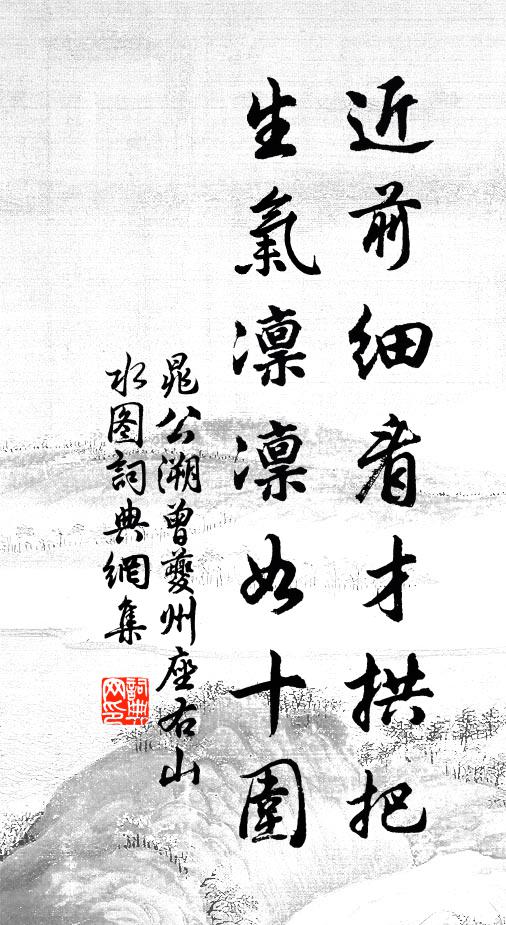 近前細看才拱把
生氣凛凛如十圍
晁公溯曾夔州座右山
水图詞典網集
詞典网印